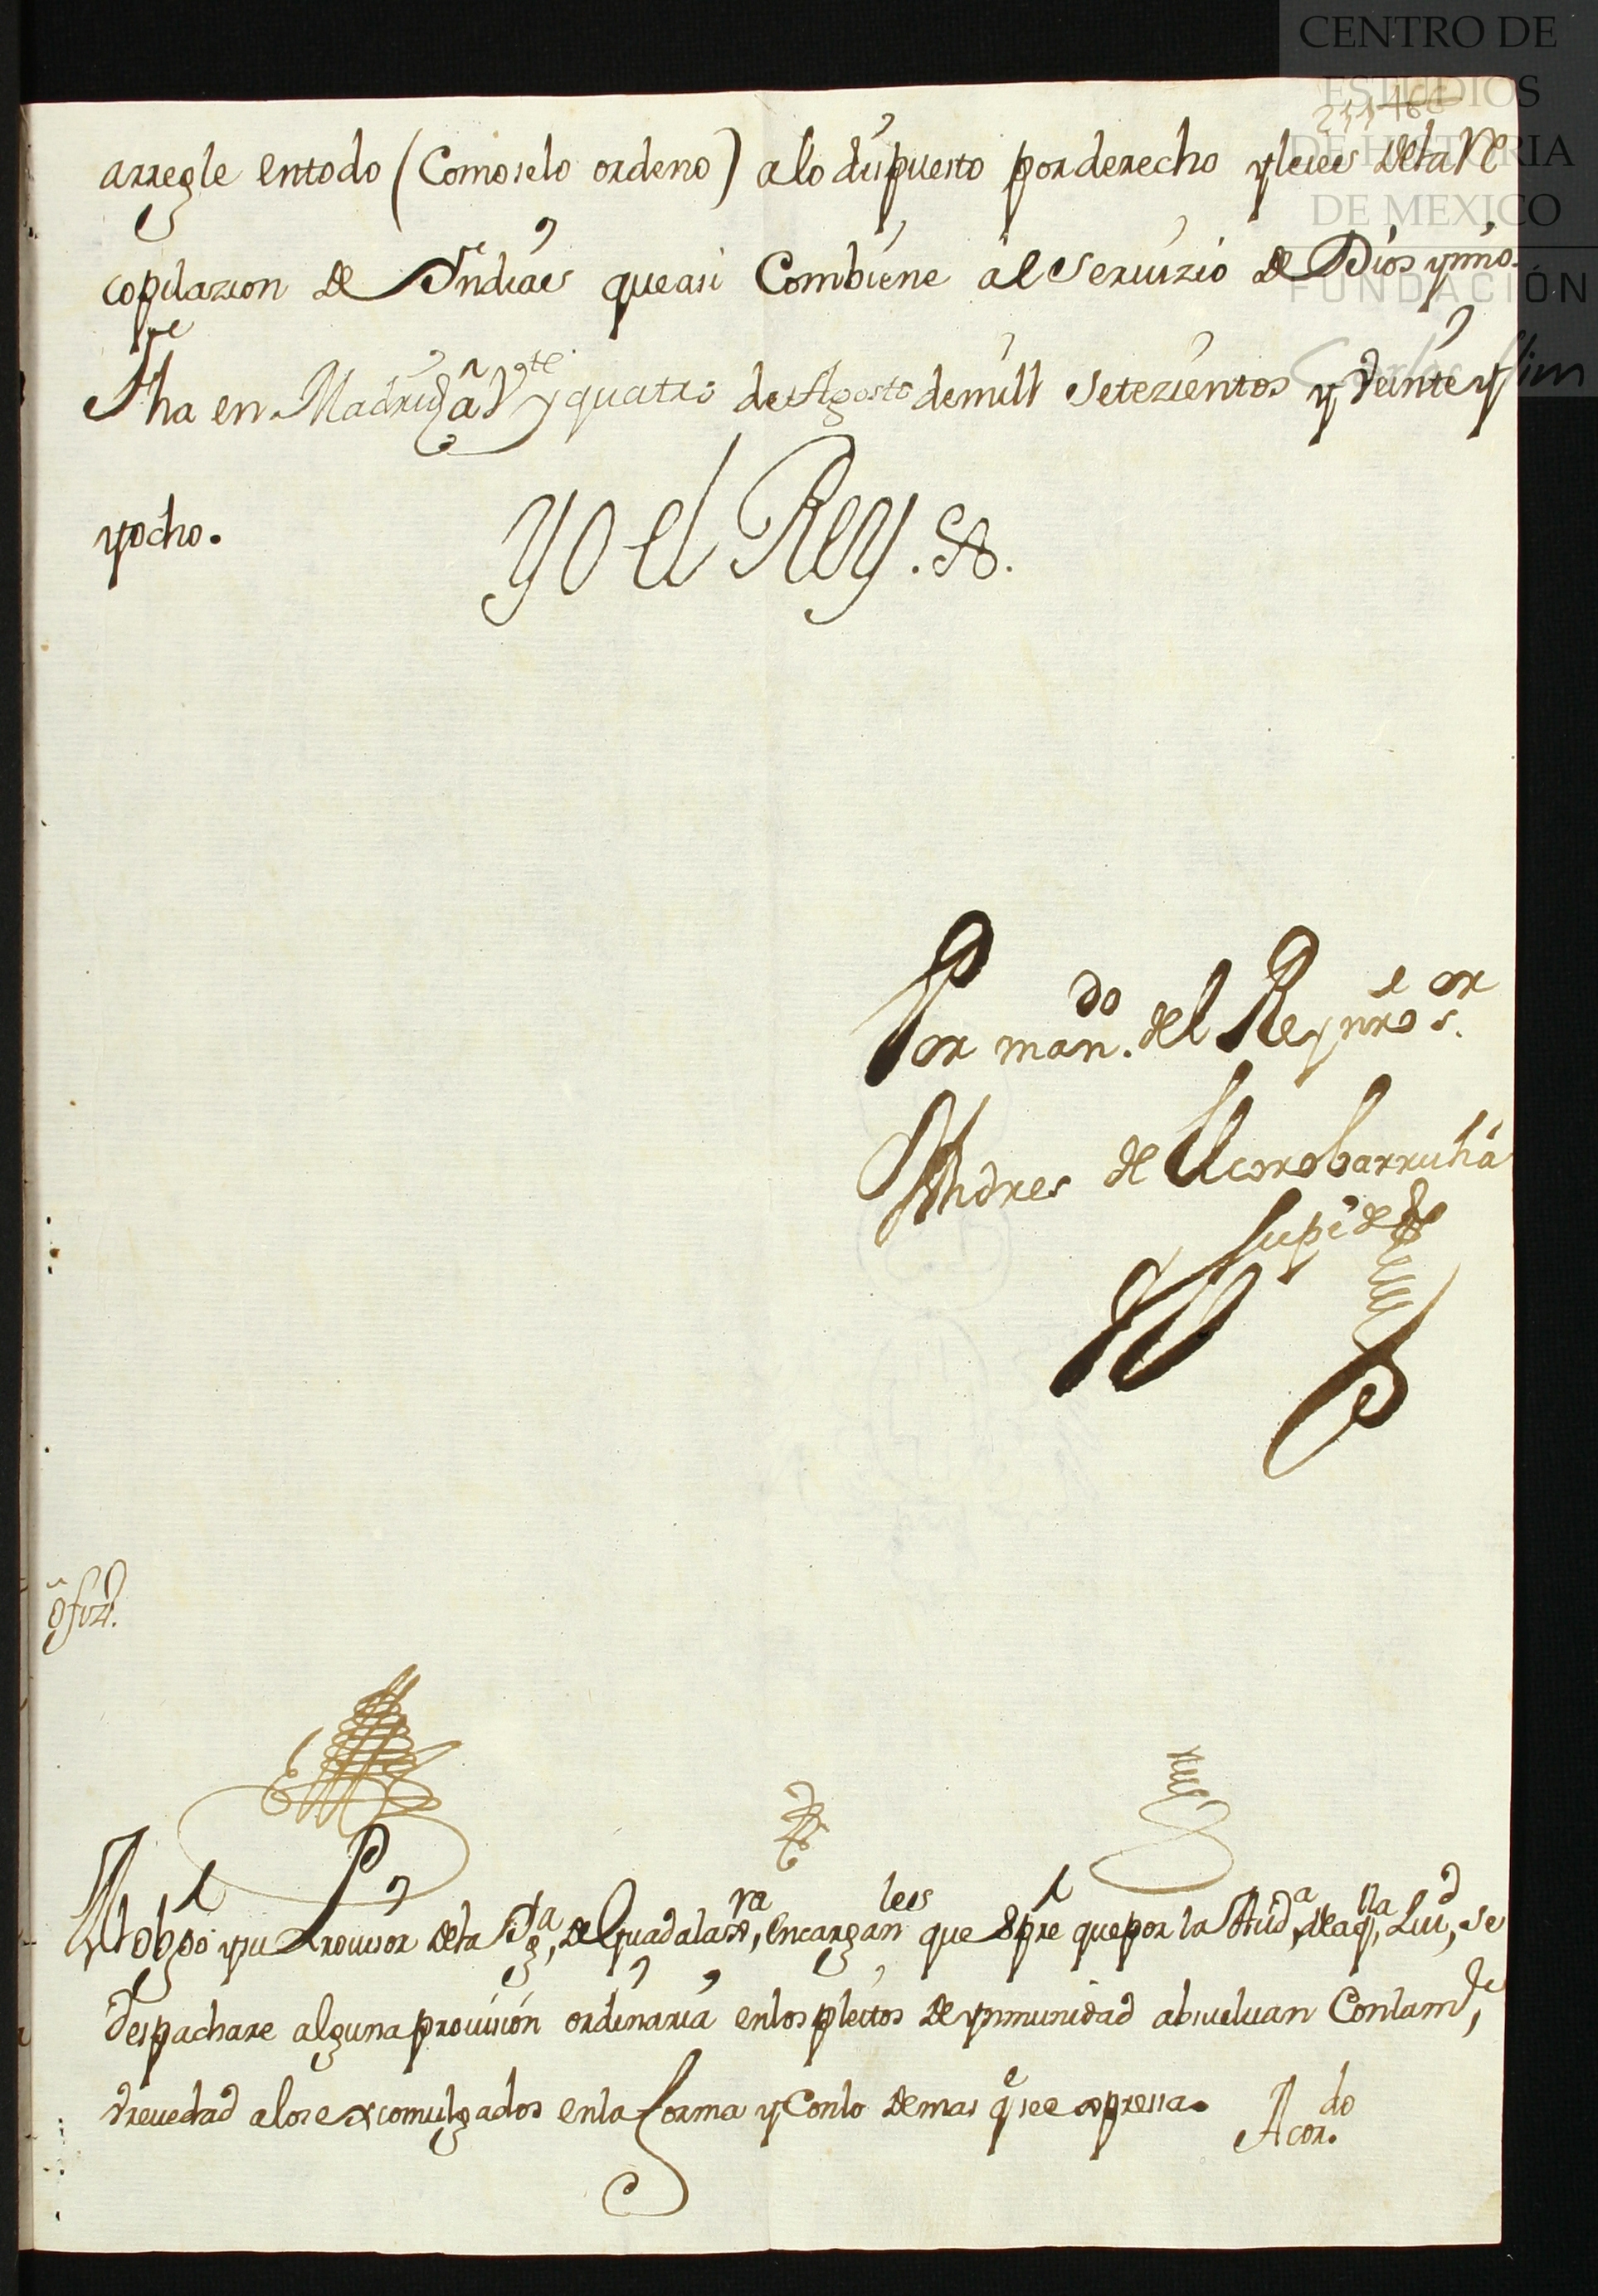 CENTRO DE
ESTUDIOS
DE HISTORIA
DE MEXICO
FUNDACIÓN
Carlos Slim
arregle entodo (Comoselo ordeno) alo dispuesto por derecho y leies dela Re
copilazion de Indias que asi Combiene al Seruizio de Dios y mio.
fha en Madrid â V.te y quatro de Agosto de mill Setezientos y Veinte y
y ocho.
Yo el Rey.
Por man.do del Rey nro s.or
Andres de Elcorobarrutia
Supi.de
ofizi.
Al obpo y su Prouisor dela Ig.a de Guadalax.ra, encargan.les que spre que por la Aud.a de aq.lla Ciu.d, se
despachare alguna prouision ordinaria enlos pleitos de ynmunidad absueluan Conla m.
vreuedad alos excomulgados enla forma y Conlo demas q se expressa.
Acor.do